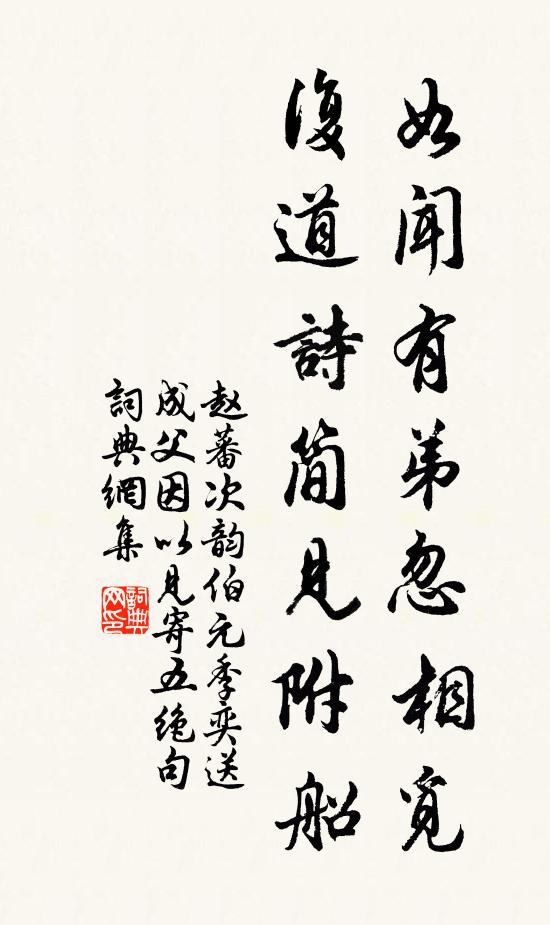 如闻有弟忽相覓
復道詩简見附船
赵蕃次韵伯元季奕送
成父因以見寄五绝句
詞典網集
詞典
网印